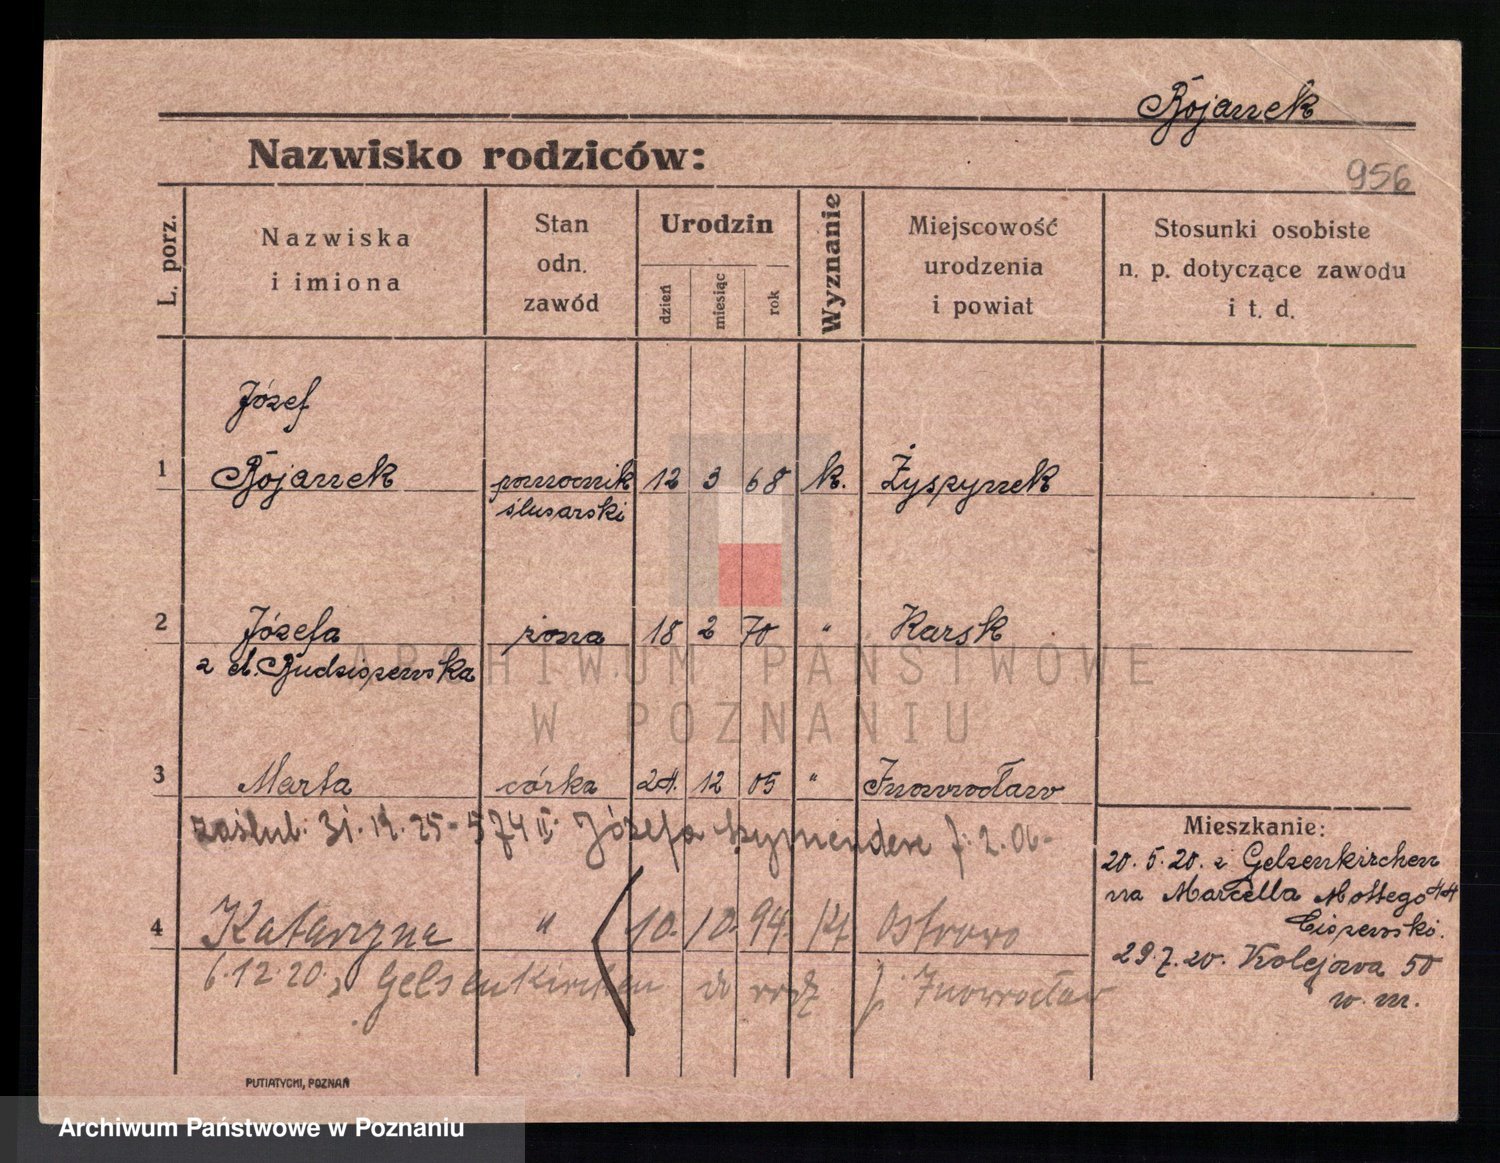 Bojarrek
956
Nazwisko rodziców:
L. porz.
Nazwiska
i imiona
Stan
odn.
zawód
Urodzin
dzień
miesiąc
rok
Wyznanie
Miejscowość
urodzenia
i powiat
Stosunki osobiste
n. p. dotyczące zawodu
i t. d.
Józef
1 pomocnik 12 3 68 k.
ślusarski
2 Józefa żona 18 2 70 " Karsk
z d.
3 Marta córka 24. 12 05 " Inowrocław
zaślub: 31. 12. 25 - 574 II. Józefa
4 Katarzyna " 10. 10. 94. kt Ostrowo
6.12.20. z Gelsenkirchen do rodz. Inowrocław
Mieszkanie:
20. 5. 20. z Gelsenkirchen
na Marcella Mottego 44
29.7.20. Kolejowa 50
w. m.
PUTIATYCKI, POZNAŃ
ARCHIWUM PAŃSTWOWE
W POZNANIU
Archiwum Państwowe w Poznaniu